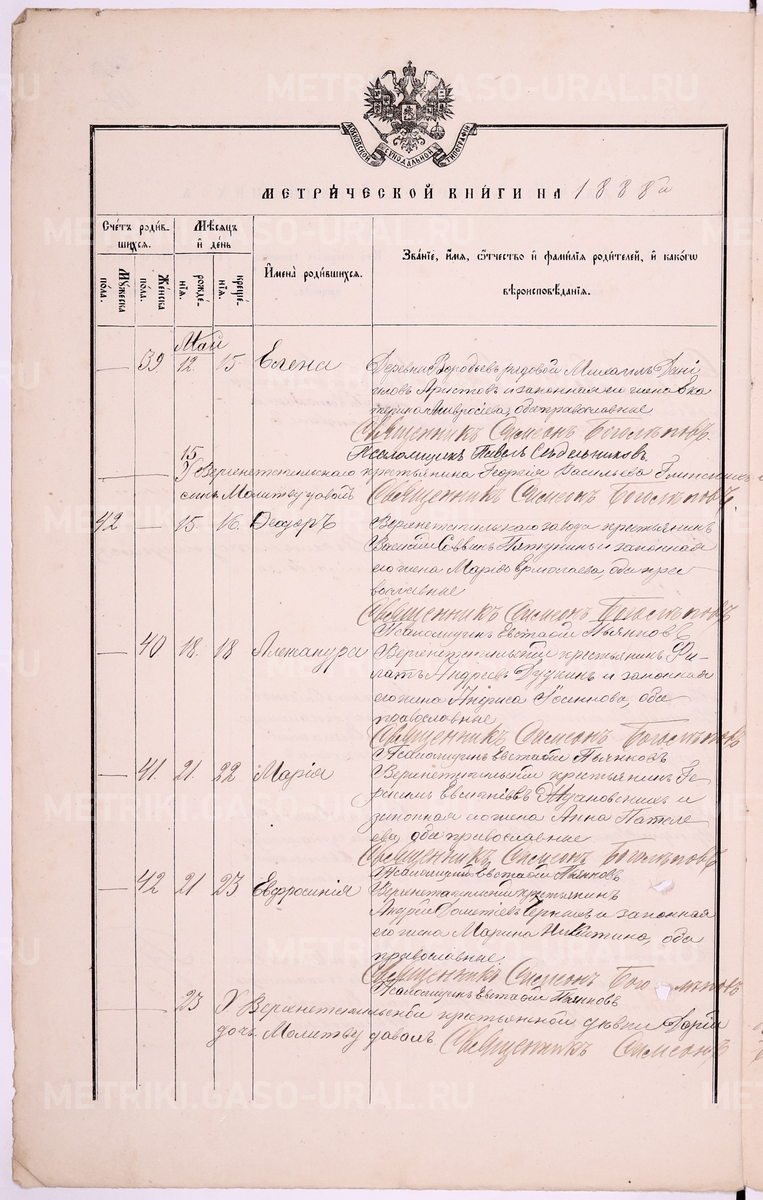 METRIKI.GASO-URAL.RU
МОСКОВСКОЙ СѴНОДАЛЬНОЙ ТИПОГРАФІИ
МЕТРИ́ЧЕСКОЙ КНИ́ГИ НА 1888
Сче́тъ роди́в-
шихся.
Мꙋ́жеска
пола.
Же́нска
пола.
Мѣ́сяцъ
и҆ день
рожде́-
нїѧ.
креще́-
нїѧ.
И҆мена̀ роди́вшихся.
Зва́нїе, и҆́мѧ, ѻ҆́тчество и҆ фами́лїѧ роди́телей, и҆ како́гѡ
вѣроисповѣ́данїѧ.
Май
— 39 12. 15. Елена
Деревни Воробьевъ рядовой Михаилъ Дани
ловъ и законная его жена Ека
терина Амвросіева, оба православные
Священникъ Симеонъ Боголѣповъ
Псаломщикъ Павелъ
15
У Верхнетагильскаго крестьянина Георгія Васильева
сынъ Молитву давалъ Священникъ Симеонъ Боголѣповъ
42 — 15. 16. Ѳеодоръ
Верхнетагильскаго завода крестьянинъ
Василій Саввинъ и законная
его жена Марѳа Ермолаева, оба пра
вославные
Священникъ Симеонъ Боголѣповъ
Псаломщикъ Евстаѳій Пьянковъ
— 40 18. 18 Александра
Верхнетагильскій крестьянинъ Фи-
латъ Андреевъ и законная
его жена оба
православные
Священникъ Симеонъ Боголѣповъ
Псаломщикъ Евстаѳій Пьянковъ
— 41. 21. 22 Марія
Верхнетагильскій крестьянинъ Ге-
расимъ и
законная его жена Анна Пантеле
ева, оба православные
Священникъ Симеонъ Боголѣповъ
Псаломщикъ Евстаѳій Пьянковъ
— 42 21 23 Евфросинія
Верхнетагильскій крестьянинъ
Андрей и законная
его жена Марина Никитина, оба
православные
Священникъ Симеонъ Боголѣповъ
Псаломщикъ Евстаѳій Пьянковъ
23 У Верхнетагильской крестьянской дѣвки Дарьи
дочь Молитву давалъ Священникъ Симеонъ
METRIKI.GASO-URAL.RU